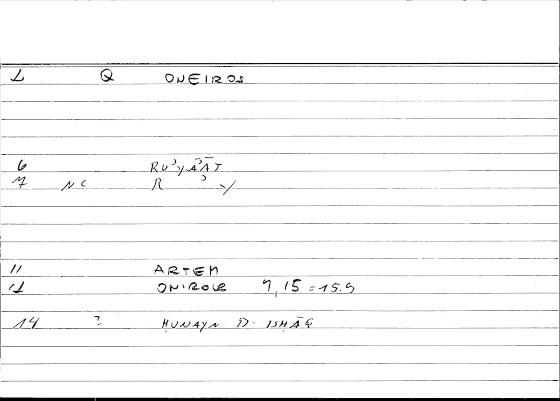 1 Q ONEIROS
6 RUʾYAʾĀT
7 NC R ʾ Y
11 ARTEM
12 ONIROCR 7, 15 = 15.9
14 ? ḤUNAYN B. ISḤĀQ